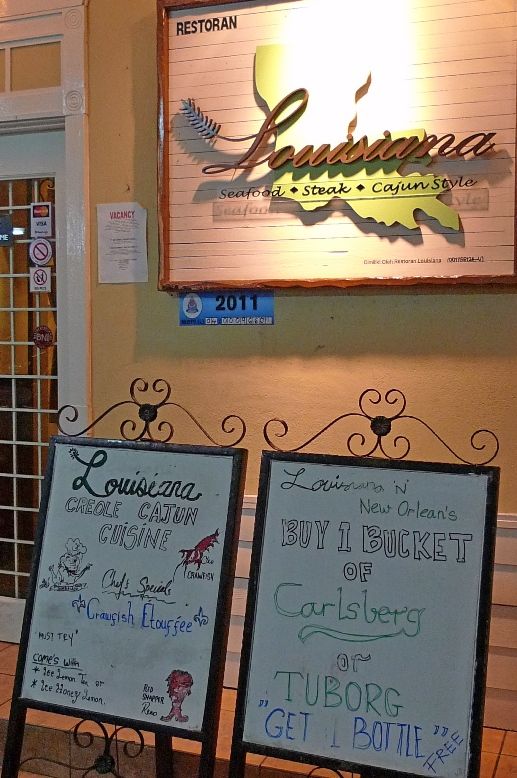 RESTORAN
Louisiana
Seafood ◆ Steak ◆ Cajun Style
Dimiliki Oleh Restoran Louisiana
VACANCY
MasterCard
VISA
2011
Louisiana
CREOLE CAJUN
CUISINE
CRAWFISH
Chef's Specials
Crawfish Etouffée
MUST TRY
COME'S WITH
* Ice Lemon Tea or
* Ice Honey Lemon.
RED
SNAPPER
Louisiana 'N'
New Orlean's
BUY 1 BUCKET
OF
Carlsberg
or
TUBORG
"GET 1 BOTTLE"
FREE